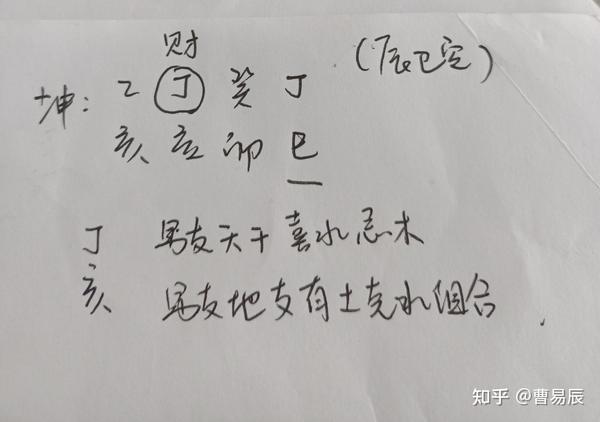 财
坤：乙丁癸丁（辰巳空）
亥亥卯巳
丁 男友天干喜水忌木
亥 男友地支有土克水组合.
知乎 @曹易辰